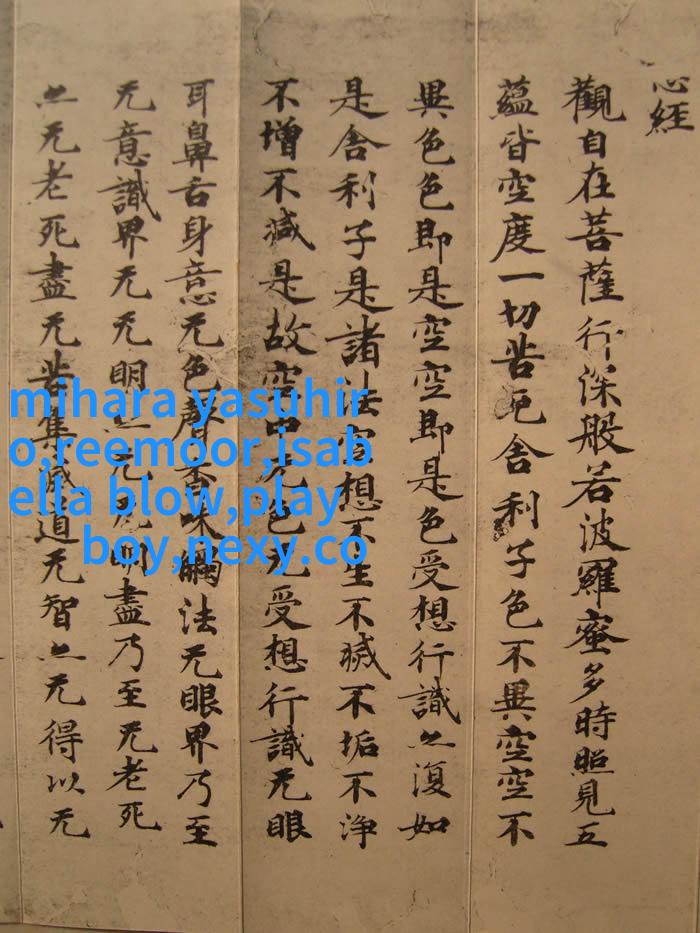 心经
觀自在菩薩行深般若波羅蜜多時照見五
蘊皆空度一切苦厄舍利子色不異空空不
異色色即是空空即是色受想行識亦復如
是舍利子是諸法空想不生不滅不垢不淨
不增不減是故空中无色无受想行識无眼
耳鼻舌身意无色聲香味觸法无眼界乃至
无意識界无无明亦无无明盡乃至无老死
亦无老死盡无苦集滅道无智亦无得以无
mihara yasuhir
o,reemoor,isab
ella blow,play
boy,nexy.co